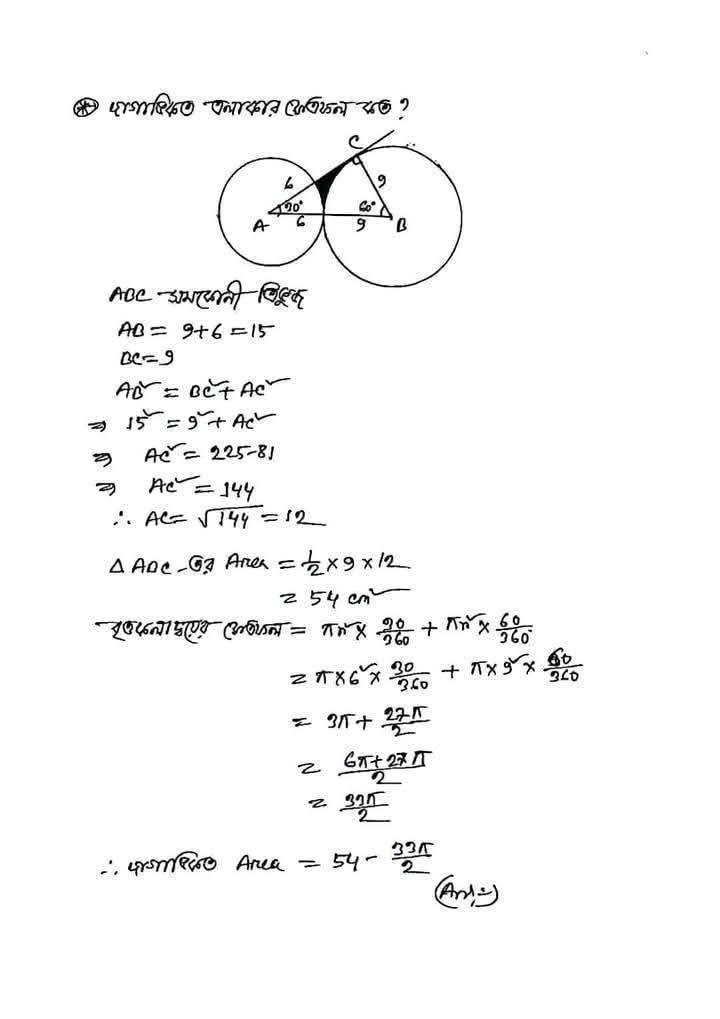 ⊛ দাগাঙ্কিত এলাকার ক্ষেত্রফল কত ?
C
6
9
30°
60°
A
6
9
B
ABC সমকোনী ত্রিভুজ
AB = 9+6 = 15
BC = 9
AB² = BC² + AC²
⇒ 15² = 9² + AC²
⇒ AC² = 225-81
⇒ AC² = 144
∴ AC = √144 = 12
△ ABC -এর Area = 1/2 × 9 × 12
= 54 cm²
বৃত্তকলাদ্বয়ের ক্ষেত্রফল = πr² × 30/360 + πr² × 60/360
= π×6² × 30/360 + π×9² × 60/360
= 3π + 27π/2
= 6π+27π/2
= 33π/2
∴ দাগাঙ্কিত Area = 54 - 33π/2
(Ans:)